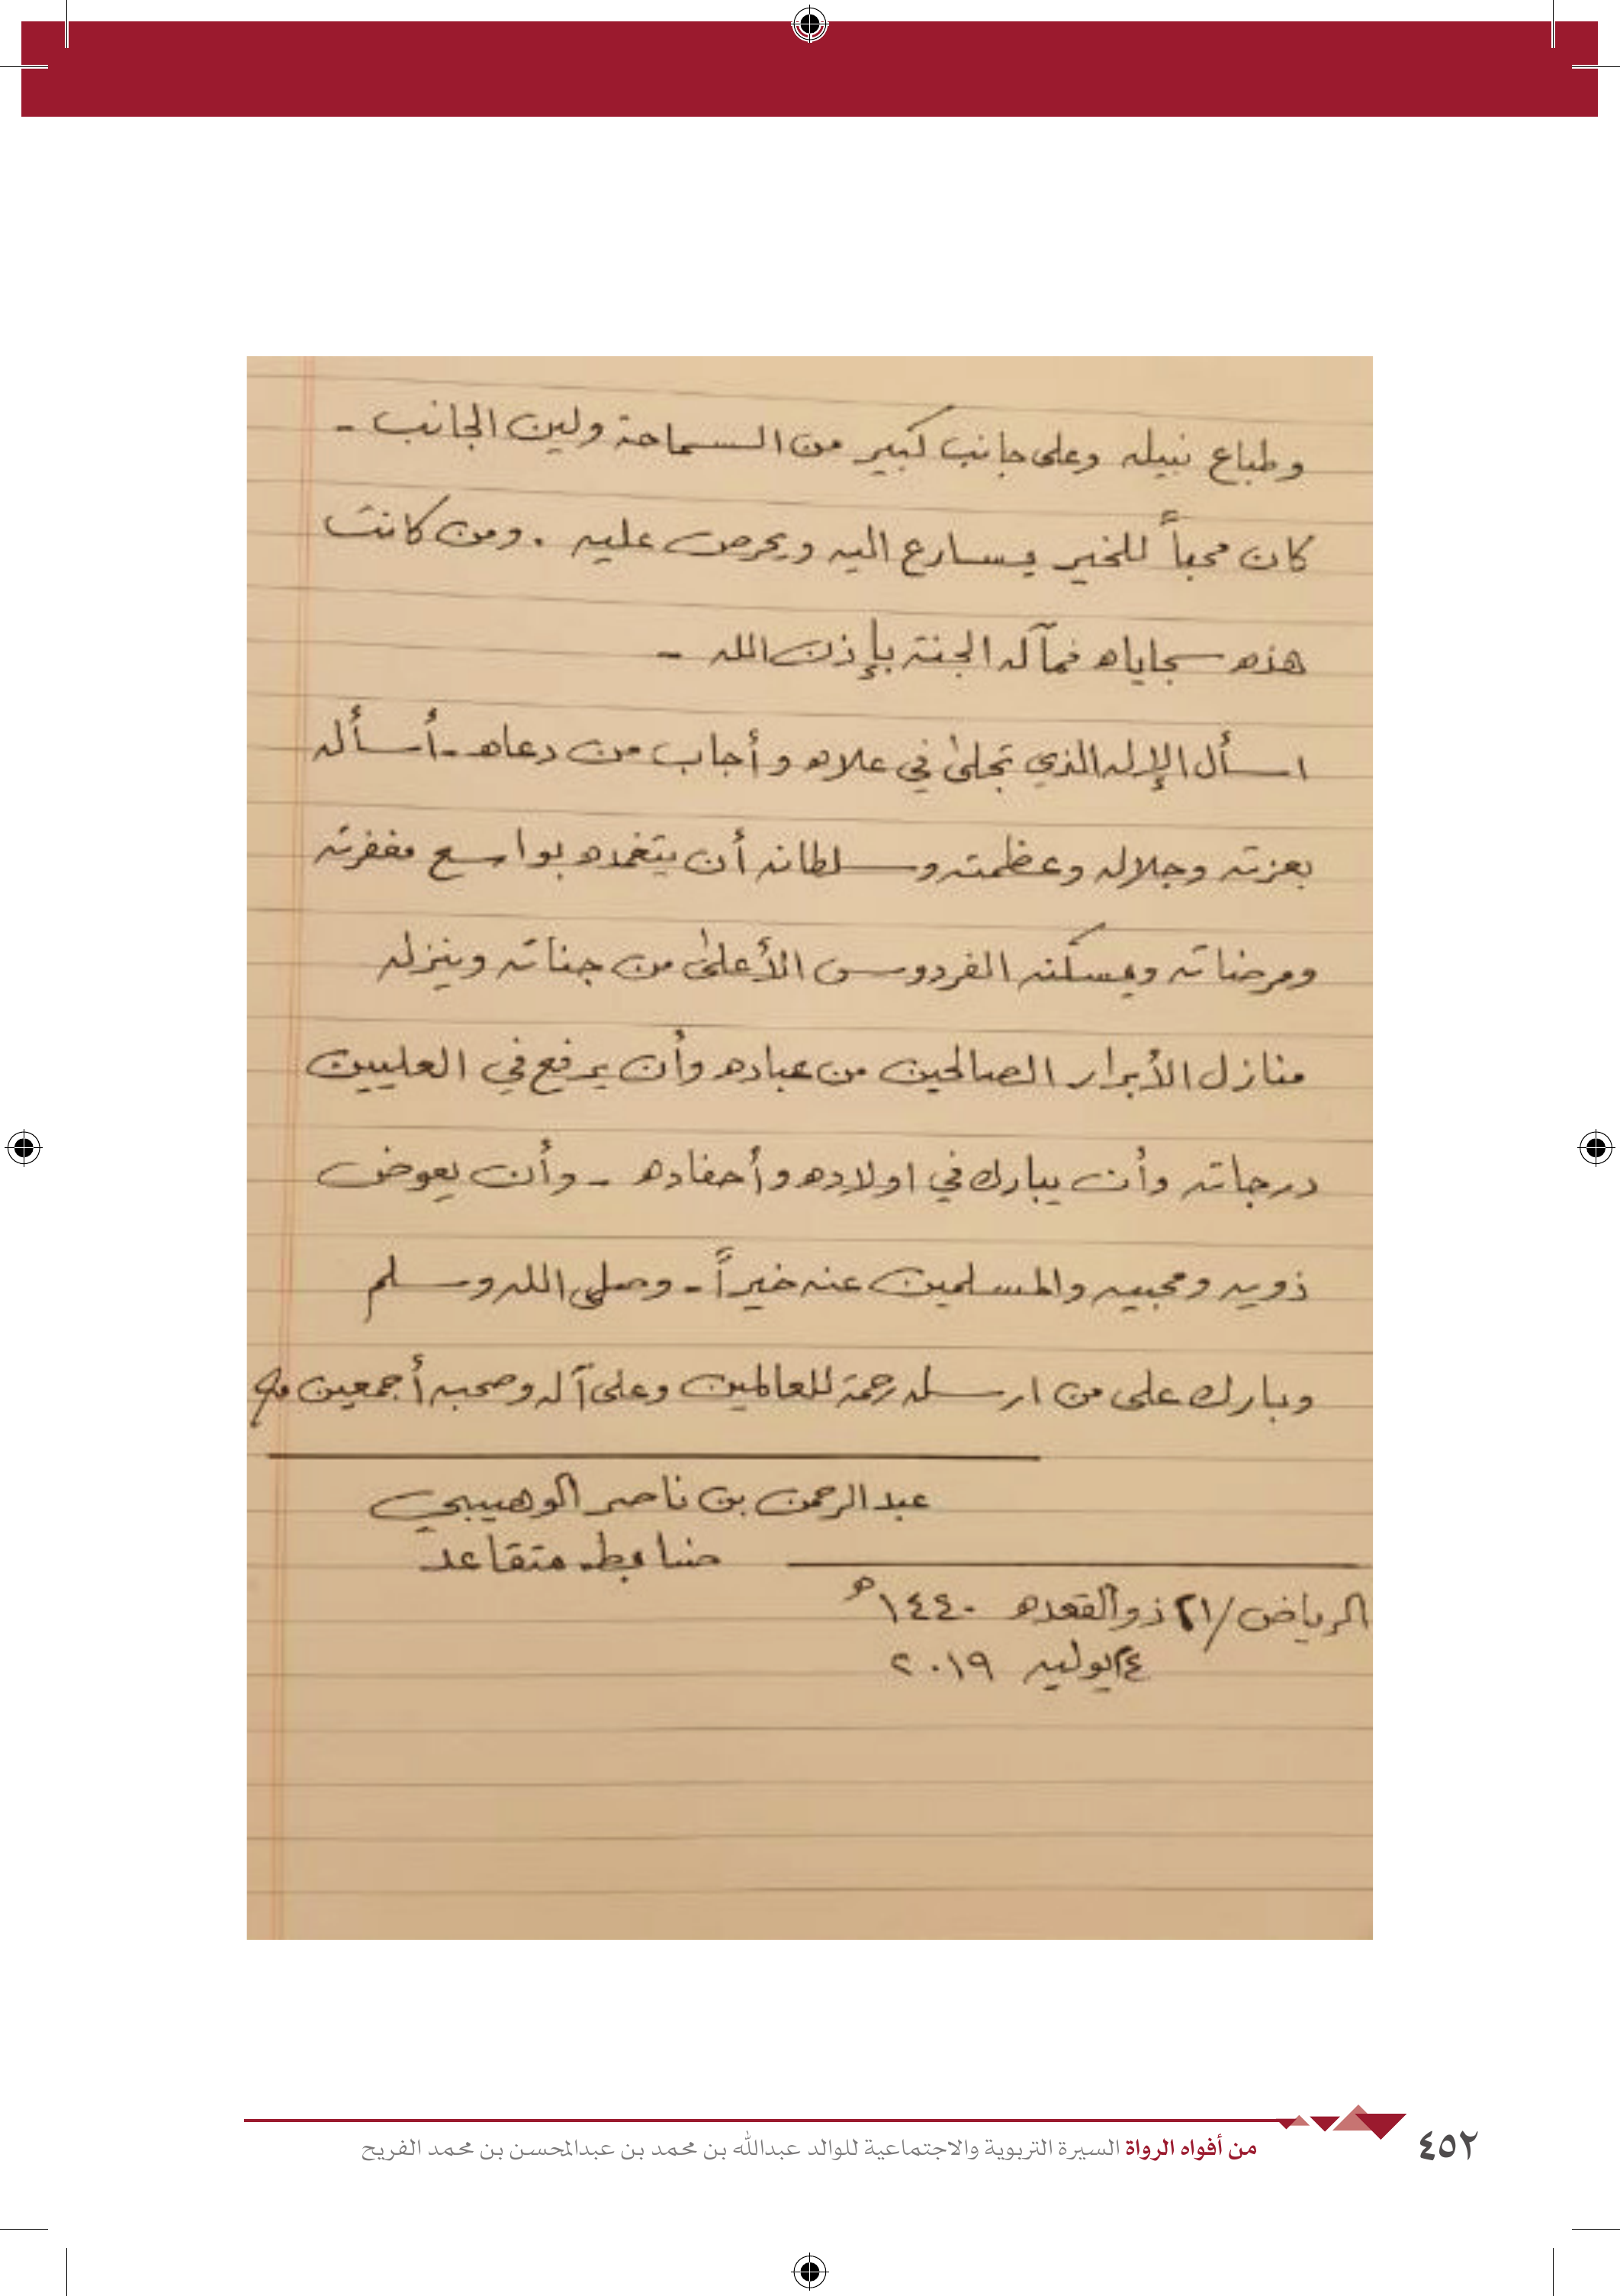 وطباع نبيله وعلى جانب كبير من السماحة ولين الجانب -
كان محباً للخير يسارع اليه ويحرص عليه . ومن كانت
هذه سجاياه فمآله الجنة بإذن الله -
اسأل الإله الذي تجلىٰ في علاه وأجاب من دعاه - أسأله
بعزته وجلاله وعظمته وسلطانه أن يتغمده بواسع مغفرته
ومرضاته ويسكنه الفردوس الأعلىٰ من جناته وينزله
منازل الأبرار الصالحين من عباده وأن يرفع في العليين
درجاته وأن يبارك في اولاده وأحفاده - وأن يعوض
ذويه ومحبيه والمسلمين عنه خيراً - وصلى الله وسلم
وبارك على من ارسله رحمة للعالمين وعلى آله وصحبه أجمعين
عبدالرحمن بن ناصر الوهيبي
ضابط متقاعد
الرياض/ ٢١ ذو القعده ١٤٤٠هـ
٢٤ يوليه ٢٠١٩
من أفواه الرواة السيرة التربوية والاجتماعية للوالد عبدالله بن محمد بن عبدالمحسن بن محمد الفريح
٤٥٢